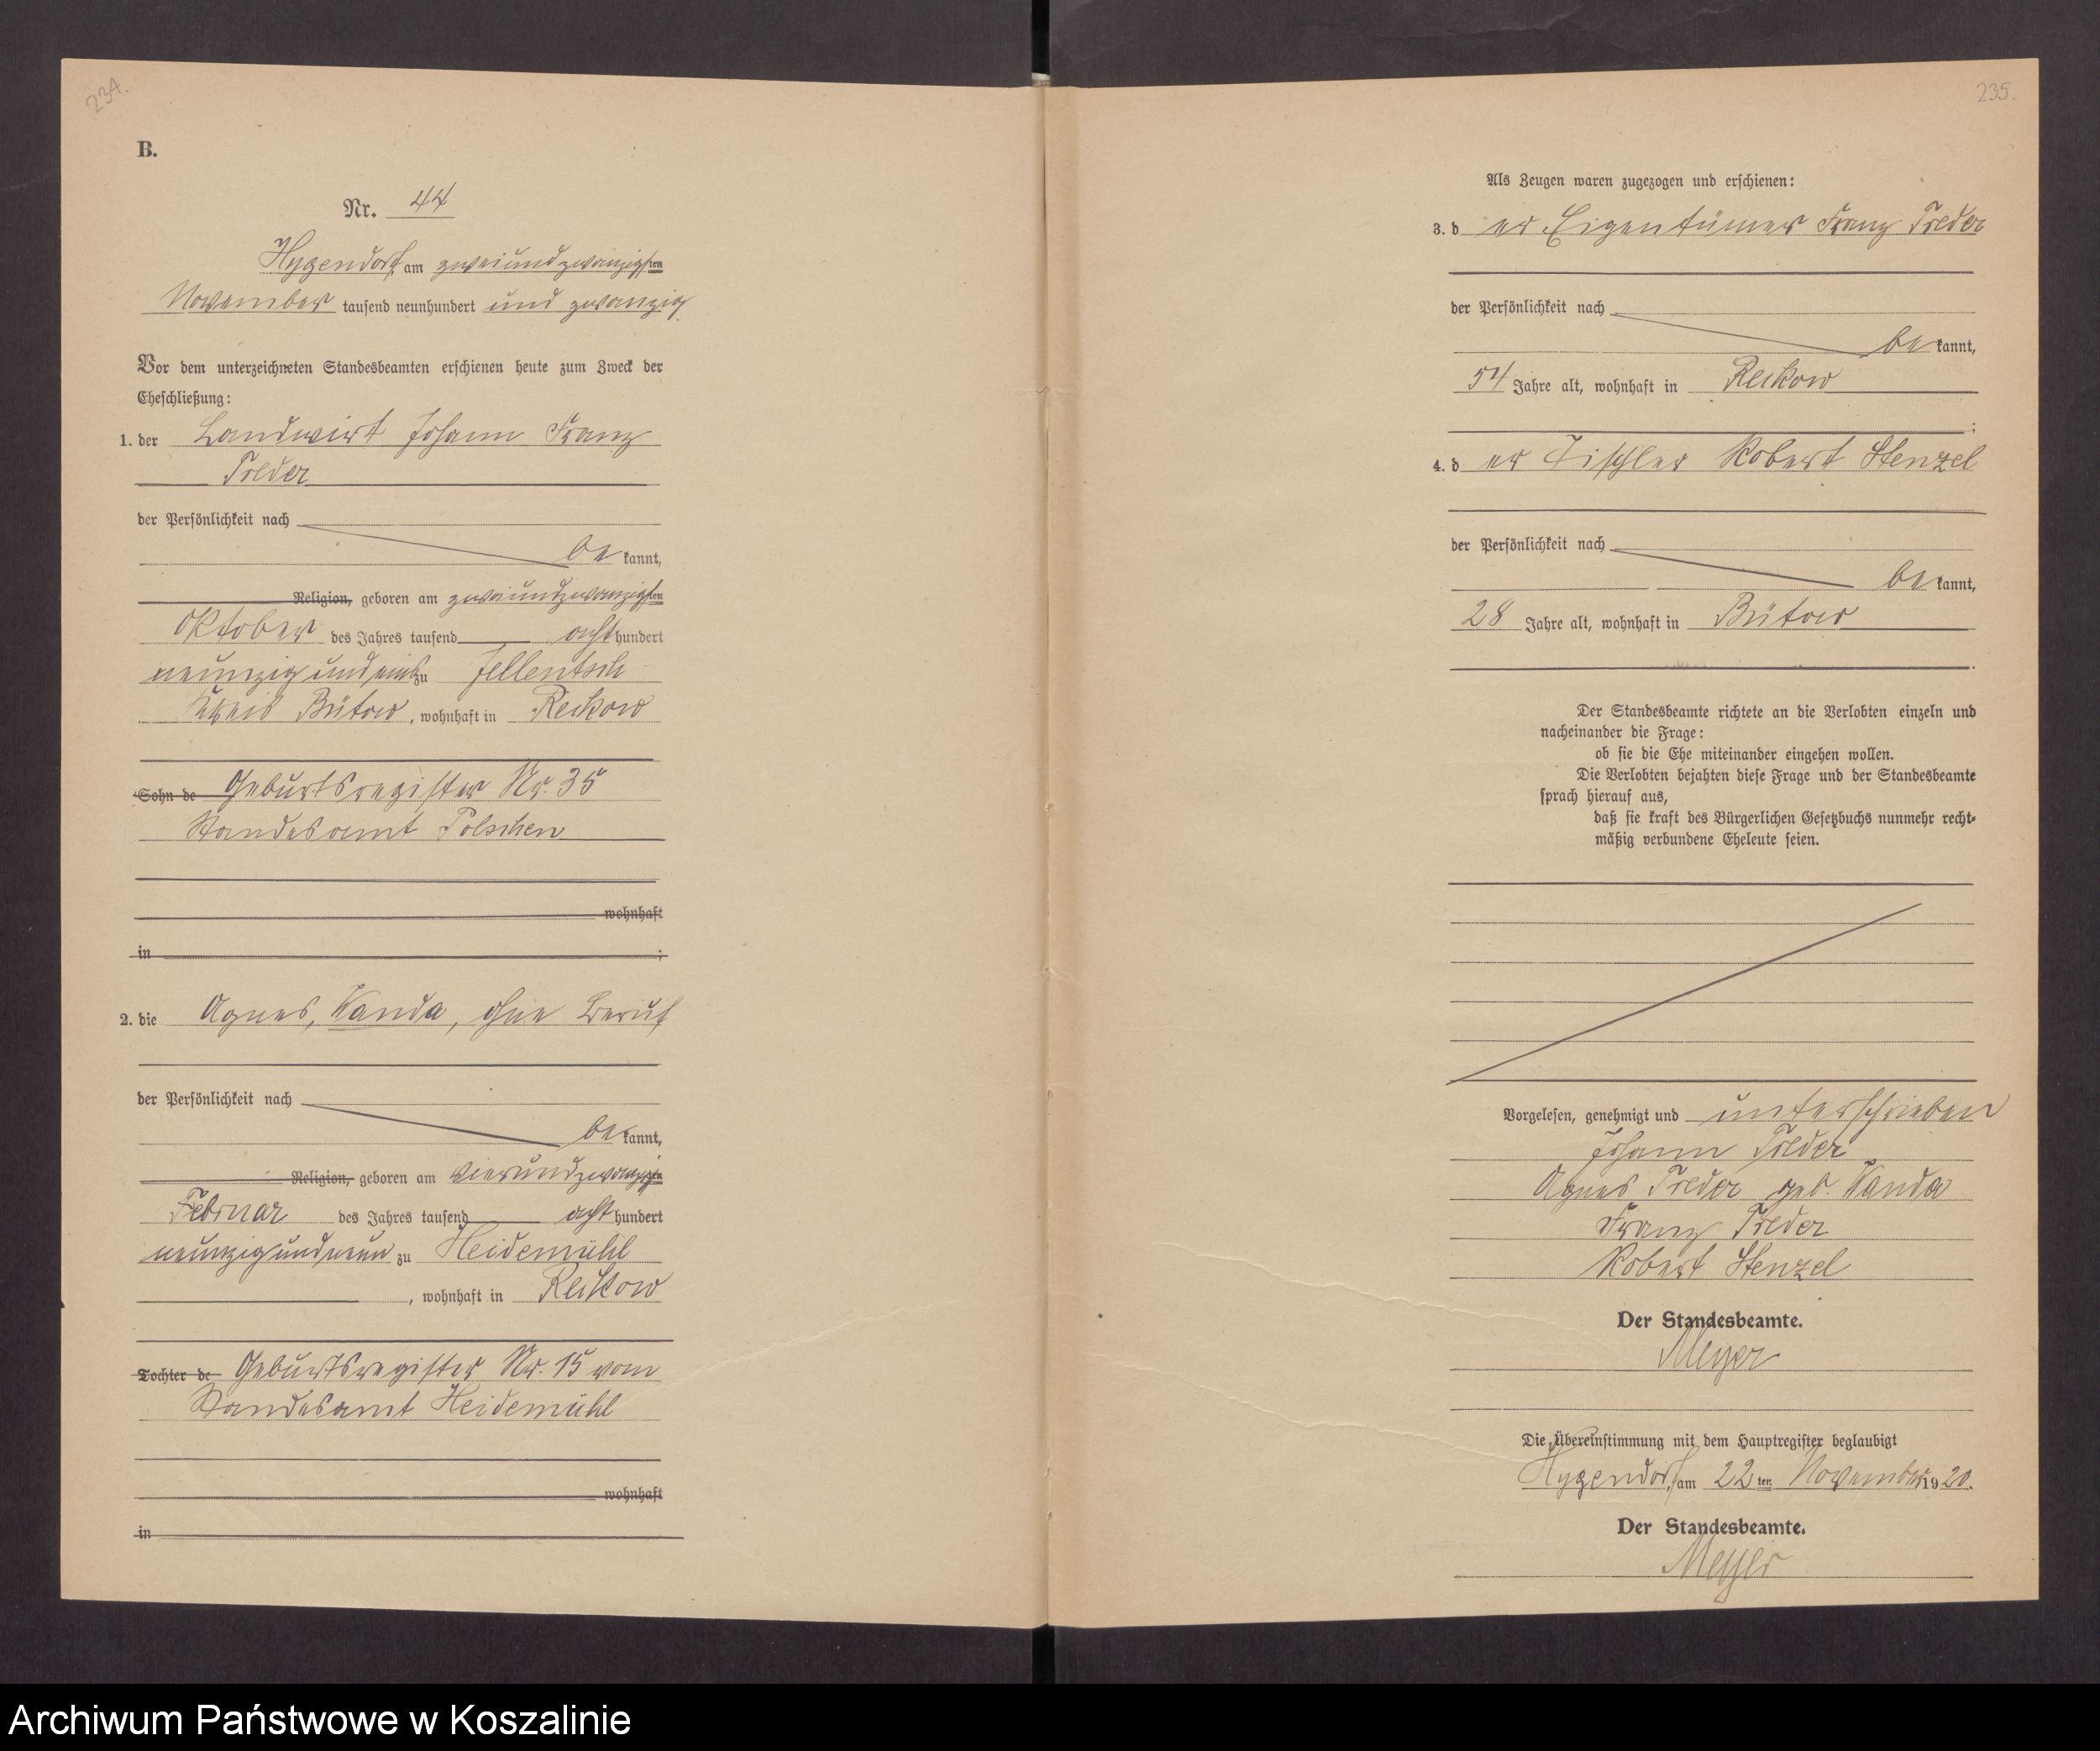 234.
B.
Nr. 44
Hygendorf, am zweiundzwanzigsten
November tausend neunhundert und zwanzig.
Vor dem unterzeichneten Standesbeamten erschienen heute zum Zweck der
Eheschließung:
1. der Landwirt Johann Franz
Treder
der Persönlichkeit nach
be kannt,
Religion, geboren am zweiundzwanzigsten
Oktober des Jahres tausend acht hundert
neunzig und eins zu Jellentsch
Kreis Bütow, wohnhaft in Reckow
Sohn de Geburtsregister Nr. 35
Standesamt Polschen
wohnhaft
in ;
2. die Agnes, Wanda, ohne Beruf
der Persönlichkeit nach
be kannt,
Religion, geboren am vierundzwanzigsten
Februar des Jahres tausend acht hundert
neunzig und neun zu Heidemühl
, wohnhaft in Reckow
Tochter de Geburtsregister Nr. 15 vom
Standesamt Heidemühl
wohnhaft
in
235.
Als Zeugen waren zugezogen und erschienen:
3. d er Eigentümer Franz Treder
der Persönlichkeit nach
be kannt,
54 Jahre alt, wohnhaft in Reckow
;
4. d er Tischler Robert Stenzel
der Persönlichkeit nach
be kannt,
28 Jahre alt, wohnhaft in Bütow
.
Der Standesbeamte richtete an die Verlobten einzeln und
nacheinander die Frage:
ob sie die Ehe miteinander eingehen wollen.
Die Verlobten bejahten diese Frage und der Standesbeamte
sprach hierauf aus,
daß sie kraft des Bürgerlichen Gesetzbuchs nunmehr recht-
mäßig verbundene Eheleute seien.
Vorgelesen, genehmigt und unterschrieben
Johann Treder
Agnes Treder geb. Wanda
Franz Treder
Robert Stenzel
Der Standesbeamte.
Meyer
Die Übereinstimmung mit dem Hauptregister beglaubigt
Hygendorf, am 22 ten November 19 20.
Der Standesbeamte.
Meyer
Archiwum Państwowe w Koszalinie